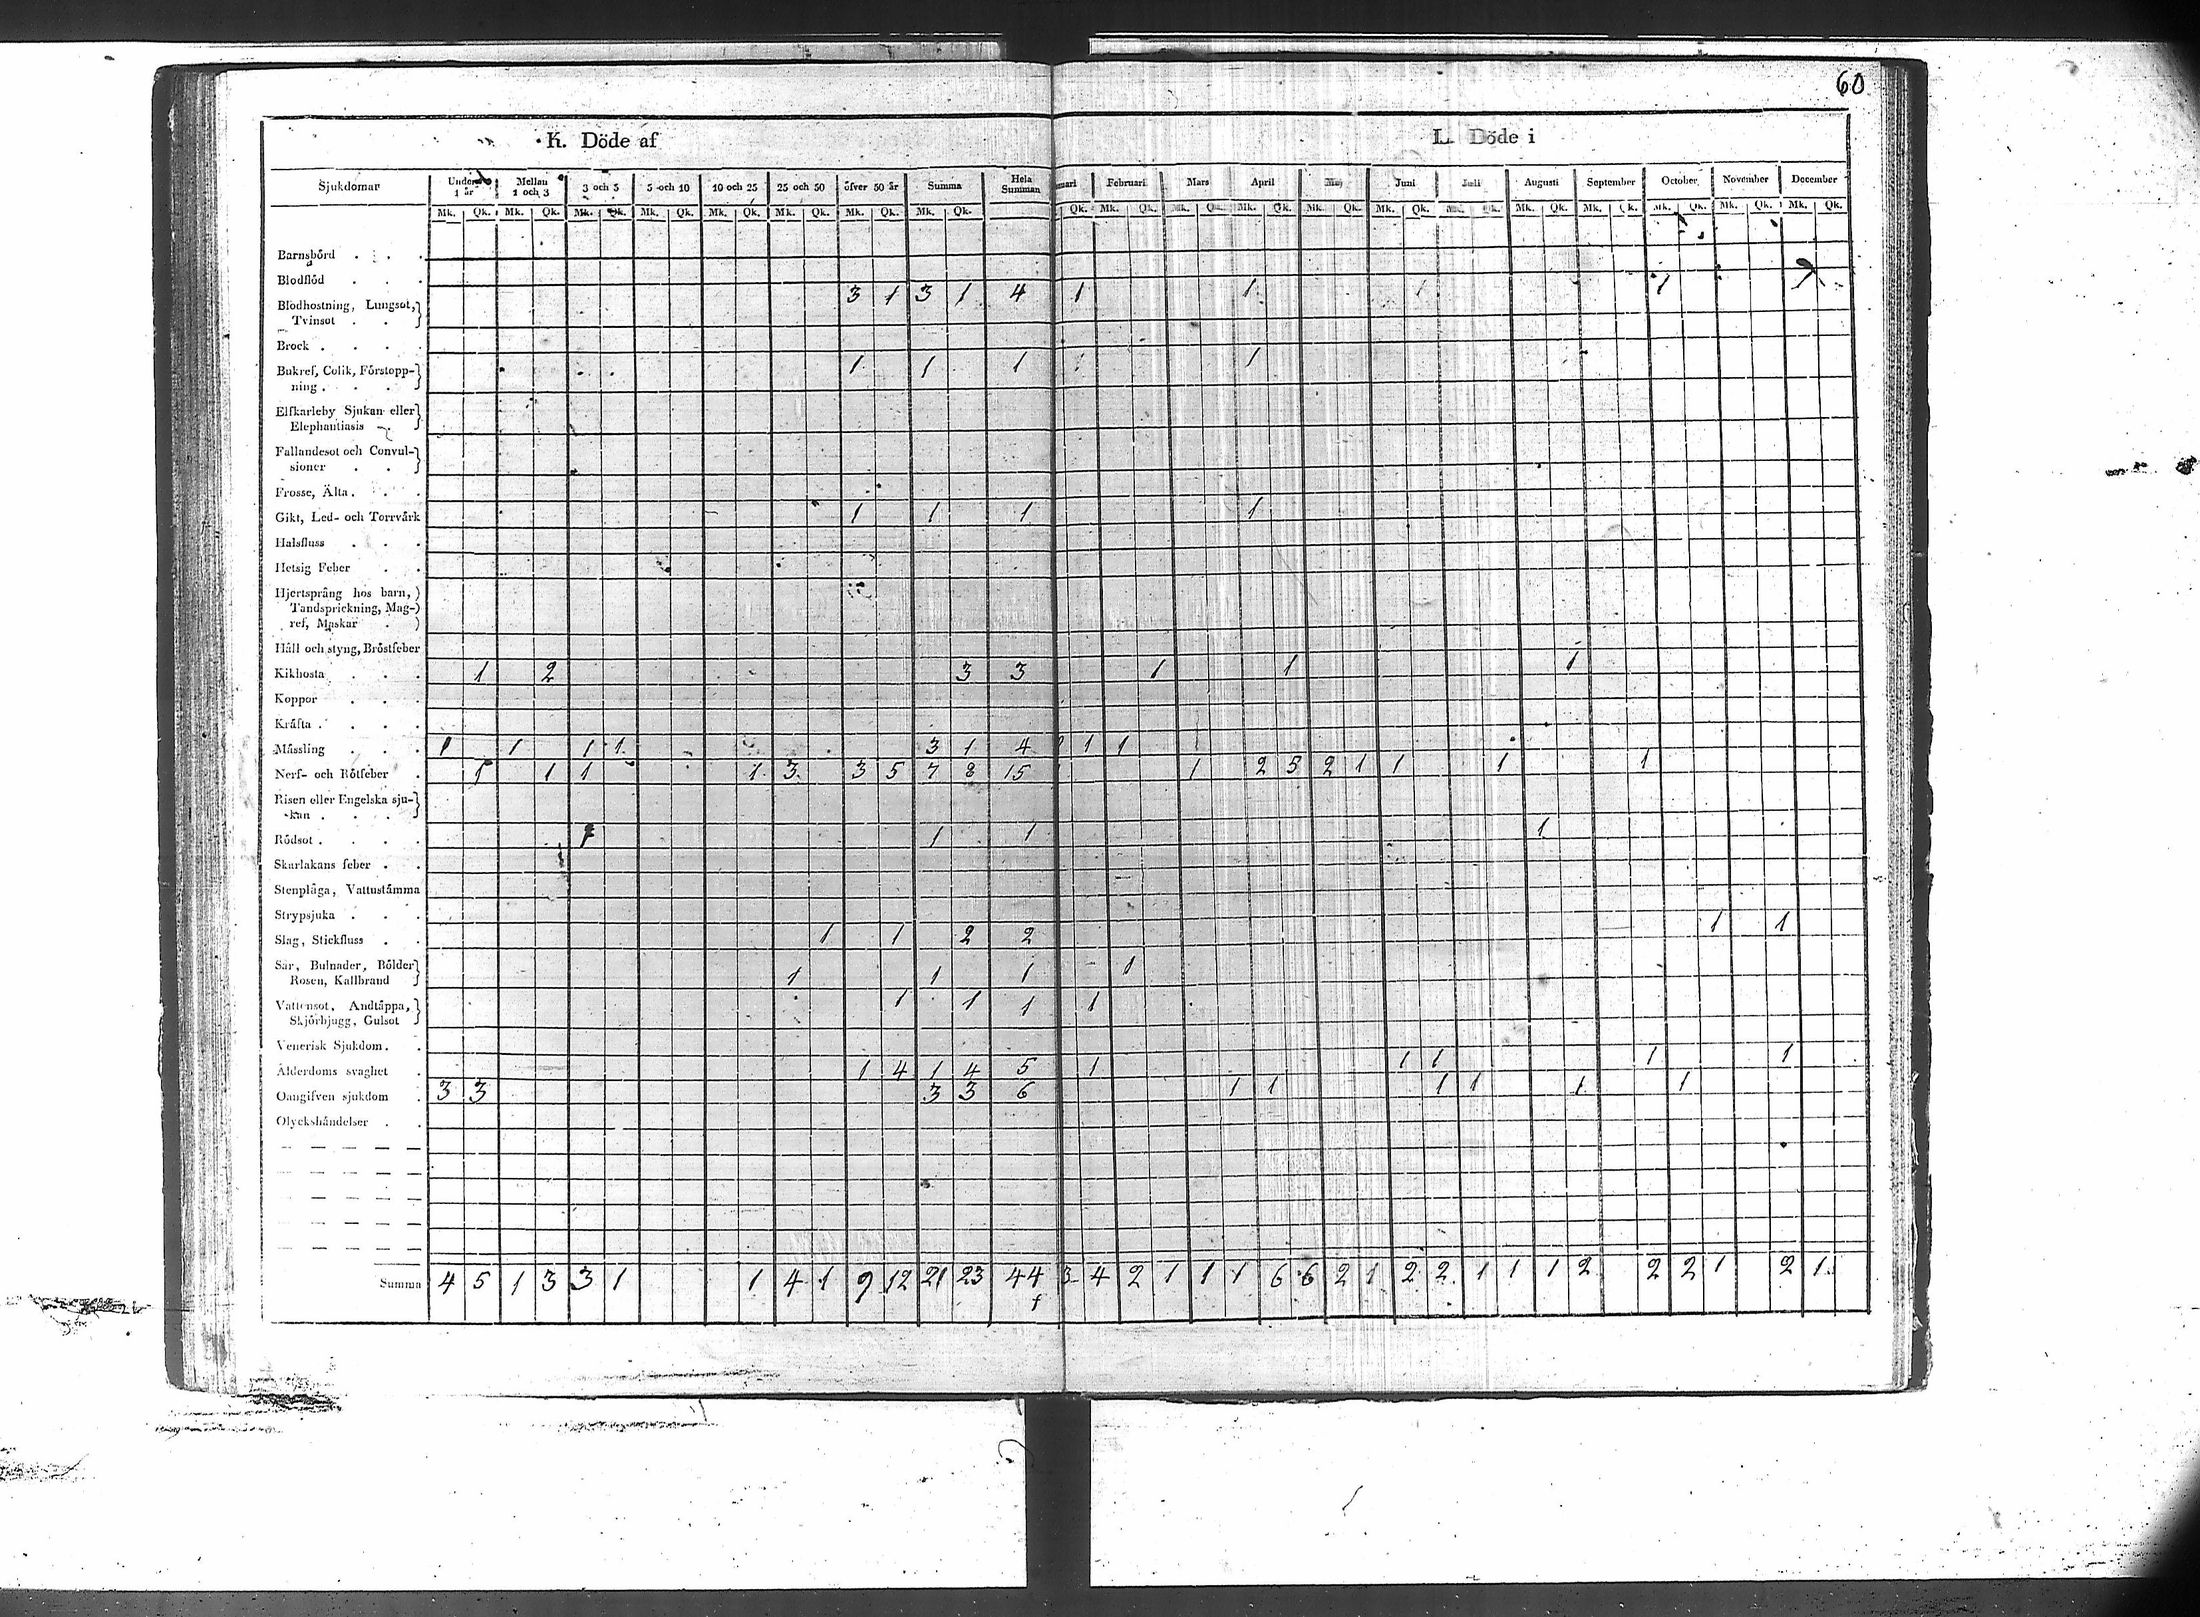 60
K. Döde af
L. Döde i
Sjukdomar Under 1 år Mellan 1 och 3 3 och 5 5 och 10 10 och 25 25 och 50 öfver 50 år Summa Hela Summan Februari Mars April Maj Juni Juli Augusti September October November December
Mk. Qk. Mk. Qk. Mk. Qk. Mk. Qk. Mk. Qk. Mk. Qk. Mk. Qk. Mk. Qk. Qk. Mk. Qk. Mk. Qk. Mk. Qk. Mk. Qk. Mk. Qk. Mk. Qk. Mk. Qk. Mk. Qk. Mk. Qk. Mk. Qk. Mk. Qk.
Barnsbörd . . .
Blodflöd . . .
Blodhostning, Lungsot, } 3 1 3 1 4 1 1 1 1
Tvinsot . .
Brock . . . .
Bukref, Colik, Förstopp-} 1 1 1 1
ning . . .
Elfkarleby Sjukan eller}
Elephantiasis .
Fallandesot och Convul-}
sioner . .
Frosse, Älta . . .
Gikt, Led- och Torrvärk 1 1 1 1
Halsfluss . . .
Hetsig Feber . .
Hjertsprång hos barn, )
Tandsprickning, Mag-)
ref, Maskar . )
Håll och styng, Bröstfeber
Kikhosta . . . 1 2 3 3 1 1 1
Koppor . . .
Kräfta . . . .
Mässling . . . 1 1 1 1 3 1 4 1 1
Nerf- och Rötfeber . 1 1 1 1 3 3 5 7 8 15 1 2 5 2 1 1 1 1
Risen eller Engelska sju-}
kan . . .
Rödsot . . . . 1 1 1 1
Skarlakans feber . .
Stenplåga, Vattustämma
Strypsjuka . . .
Slag, Stickfluss . . 1 1 2 2 1 1
Sår, Bulnader, Bölder} 1 1 1 1
Rosen, Kallbrand
Vattensot, Andtäppa, } 1 1 1 1
Skjörbjugg, Gulsot
Venerisk Sjukdom . .
Ålderdoms svaghet . 1 4 1 4 5 1 1 1 1 1
Oangifven sjukdom . 3 3 3 3 6 1 1 1 1 1 1
Olyckshändelser . .
Summa 4 5 1 3 3 1 1 4 1 9 12 21 23 44 3 4 2 1 1 1 6 6 2 1 2 2 1 1 1 2 2 2 1 2 1